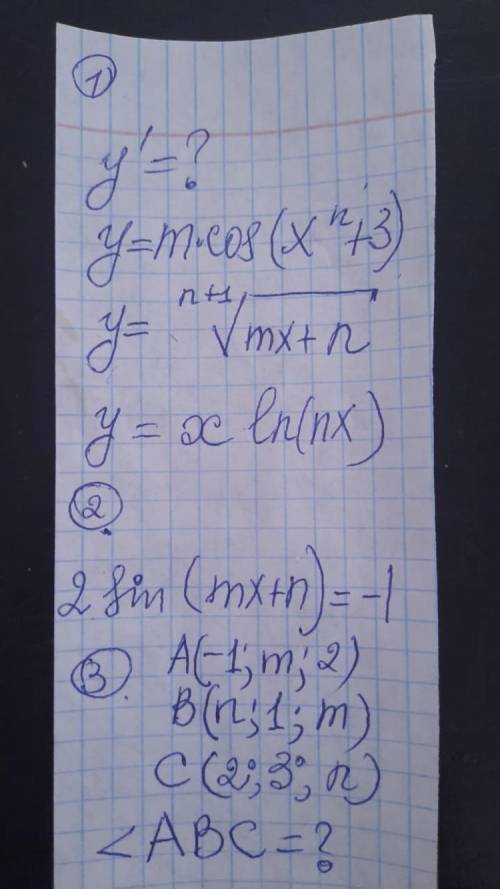 1
y'=?
y=m·cos(xⁿ+3)
y= ⁿ⁺¹√mx+n
y = x ln(nx)
2
2 sin (mx+n)=-1
3 A(-1; m; 2)
B(n; 1; m)
C(2; 3; n)
<ABC=?